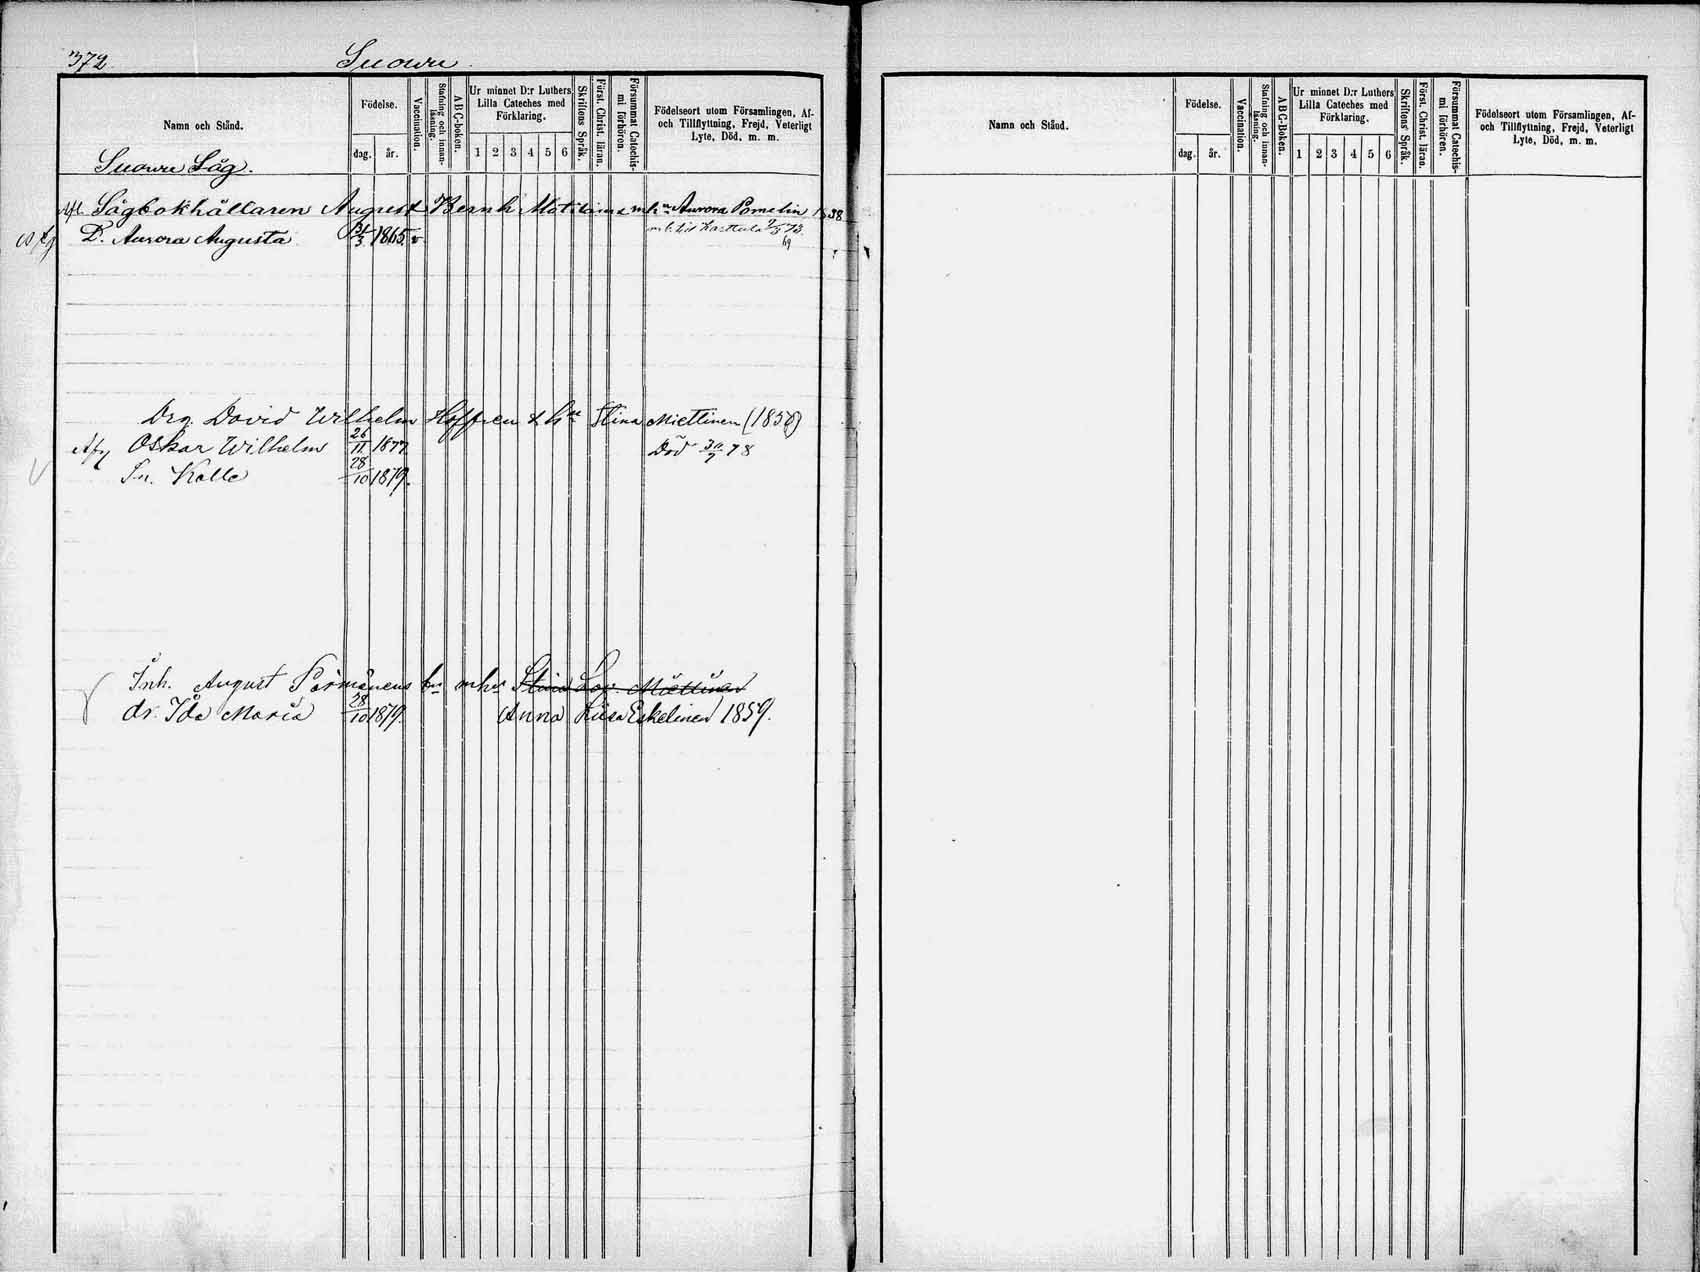 372 Suowu
Namn och Stånd.
Födelse.
dag. år.
Vaccination.
Stafning och innanläsning.
ABC-boken.
Ur minnet D:r Luthers
Lilla Cateches med
Förklaring.
1 2 3 4 5 6
Skriftens Språk.
Först. Christ. läran.
Försummat Catechismi förhören.
Födelseort utom Församlingen, Af-
och Tillflyttning, Frejd, Veterligt
Lyte, Död, m. m.
Suowu Såg.
Sågbokhållaren August Bernh. mhu Aurora Pomelin 1838
D. Aurora Augusta 31/3 1865 v Karttula 73
69
Drg. David Wilhelm Hoffren & hu Stina Miettinen (1850)
Afg Oskar Wilhelm 26/11 1877 Död 30/7 78
Sn. Kalle 28/10 1879.
Inh. August Parmanens mhu Stina Lov. Miettinen
dr. Ida Maria 28/10 1879. Anna Liisa Eskelinen 1859.
Namn och Stånd.
Födelse.
dag. år.
Vaccination.
Stafning och innanläsning.
ABC-Boken.
Ur minnet D:r Luthers
Lilla Cateches med
Förklaring.
1 2 3 4 5 6
Skriftens Språk.
Först. Christ. läran.
Försummat Catechismi förhören.
Födelseort utom Församlingen, Af-
och Tillflyttning, Frejd, Veterligt
Lyte, Död, m. m.